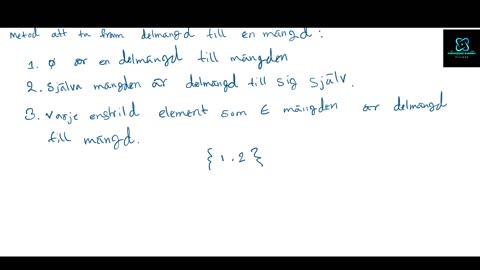 metod att ta fram delmängd till en mängd :
1. ∅ är en delmängd till mängden
2. själva mängden är delmängd till sig själv.
3. varje enskild element som ∈ mängden är delmängd
till mängd.
{ 1 . 2 }